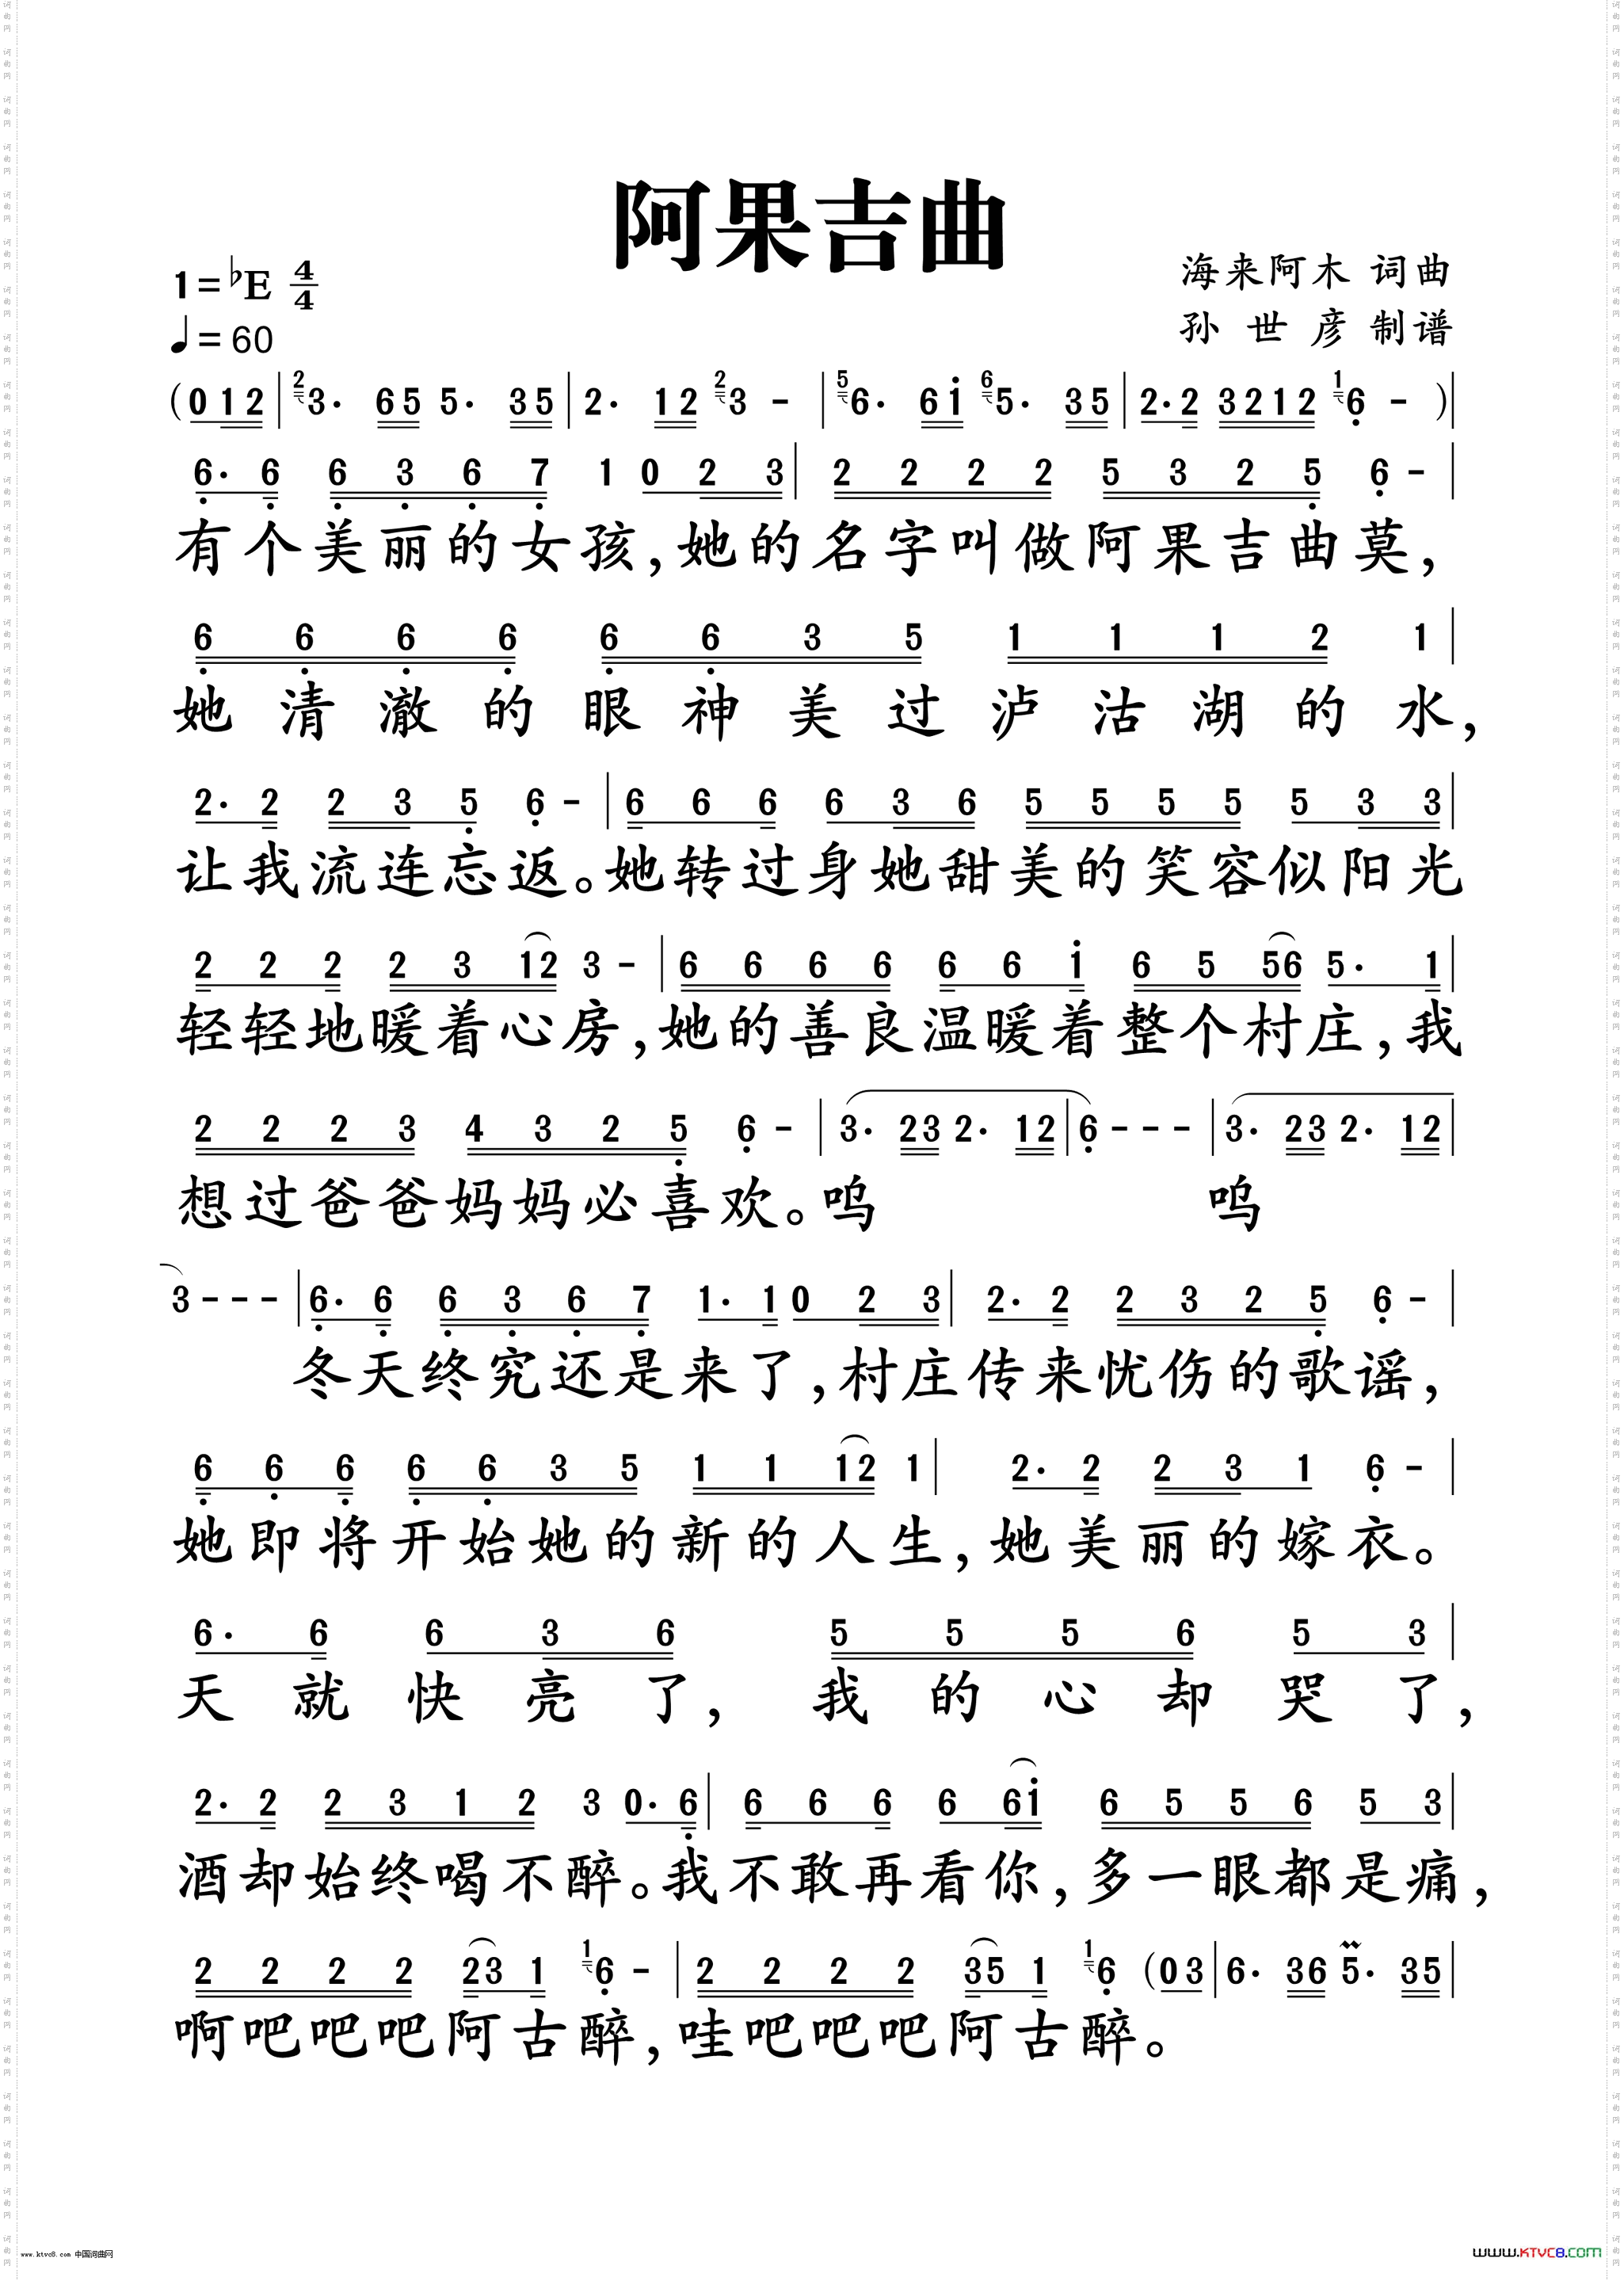 阿果吉曲
1=♭E 4/4
海来阿木 词曲
♩=60
孙世彦 制谱
(0 1 2 | 2 3· 6 5 5· 3 5 | 2· 1 2 2 3 - | 5 6· 6 i 6 5· 3 5 | 2· 2 3 2 1 2 1 6 - )|
6· 6 6 3 6 7 1 0 2 3 | 2 2 2 2 5 3 2 5 6 - |
有个美丽的女孩,她的名字叫做阿果吉曲莫,
6 6 6 6 6 6 3 5 1 1 1 2 1 |
她清澈的眼神美过泸沽湖的水,
2· 2 2 3 5 6 - | 6 6 6 6 3 6 5 5 5 5 5 3 3 |
让我流连忘返。她转过身她甜美的笑容似阳光
2 2 2 2 3 1 2 3 - | 6 6 6 6 6 6 i 6 5 5 6 5· 1 |
轻轻地暖着心房,她的善良温暖着整个村庄,我
2 2 2 3 4 3 2 5 6 - | 3· 2 3 2· 1 2 | 6 - - - | 3· 2 3 2· 1 2 |
想过爸爸妈妈必喜欢。呜 呜
3 - - - | 6· 6 6 3 6 7 1· 1 0 2 3 | 2· 2 2 3 2 5 6 - |
冬天终究还是来了,村庄传来忧伤的歌谣,
6 6 6 6 6 3 5 1 1 1 2 1 | 2· 2 2 3 1 6 - |
她即将开始她的新的人生,她美丽的嫁衣。
6· 6 6 3 6 5 5 5 6 5 3 |
天就快亮了,我的心却哭了,
2· 2 2 3 1 2 3 0· 6 | 6 6 6 6 6 i 6 5 5 6 5 3 |
酒却始终喝不醉。我不敢再看你,多一眼都是痛,
2 2 2 2 2 3 1 1 6 - | 2 2 2 2 3 5 1 1 6 (0 3 | 6· 3 6 5· 3 5 |
啊吧吧吧阿古醉,哇吧吧吧阿古醉。
www.ktvc8.com 中国词曲网
WWW.KTVC8.COM